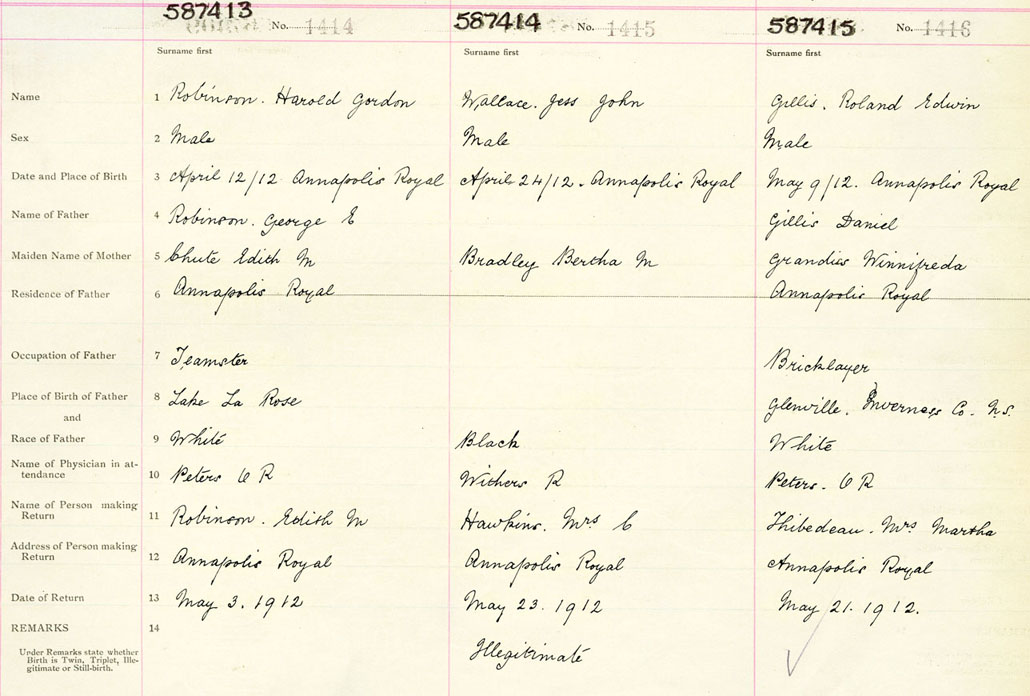 587413 No. 1414 587414 No. 1415 587415 No. 1416
Surname first Surname first Surname first
Name 1 Robinson. Harold Gordon Wallace. Jess John Gillis. Roland Edwin
Sex 2 Male Male Male
Date and Place of Birth 3 April 12/12 Annapolis Royal April 24/12. Annapolis Royal May 9/12. Annapolis Royal
Name of Father 4 Robinson. George E Gillis Daniel
Maiden Name of Mother 5 Chute Edith M Bradley Bertha M Grandies Winnifreda
Residence of Father 6 Annapolis Royal Annapolis Royal
Occupation of Father 7 Teamster Bricklayer
Place of Birth of Father 8 Lake La Rose Glenville. Inverness Co. N.S.
and
Race of Father 9 White Black White
Name of Physician in at-
tendance 10 Peters O R Withers R Peters. O R
Name of Person making
Return 11 Robinson. Edith M Hawkins. Mrs C Thibedeau. Mrs Martha
Address of Person making
Return 12 Annapolis Royal Annapolis Royal Annapolis Royal
Date of Return 13 May 3. 1912 May 23. 1912 May 21. 1912.
REMARKS 14
Under Remarks state whether
Birth is Twin, Triplet, Ille-
gitimate or Still-birth. Illegitimate